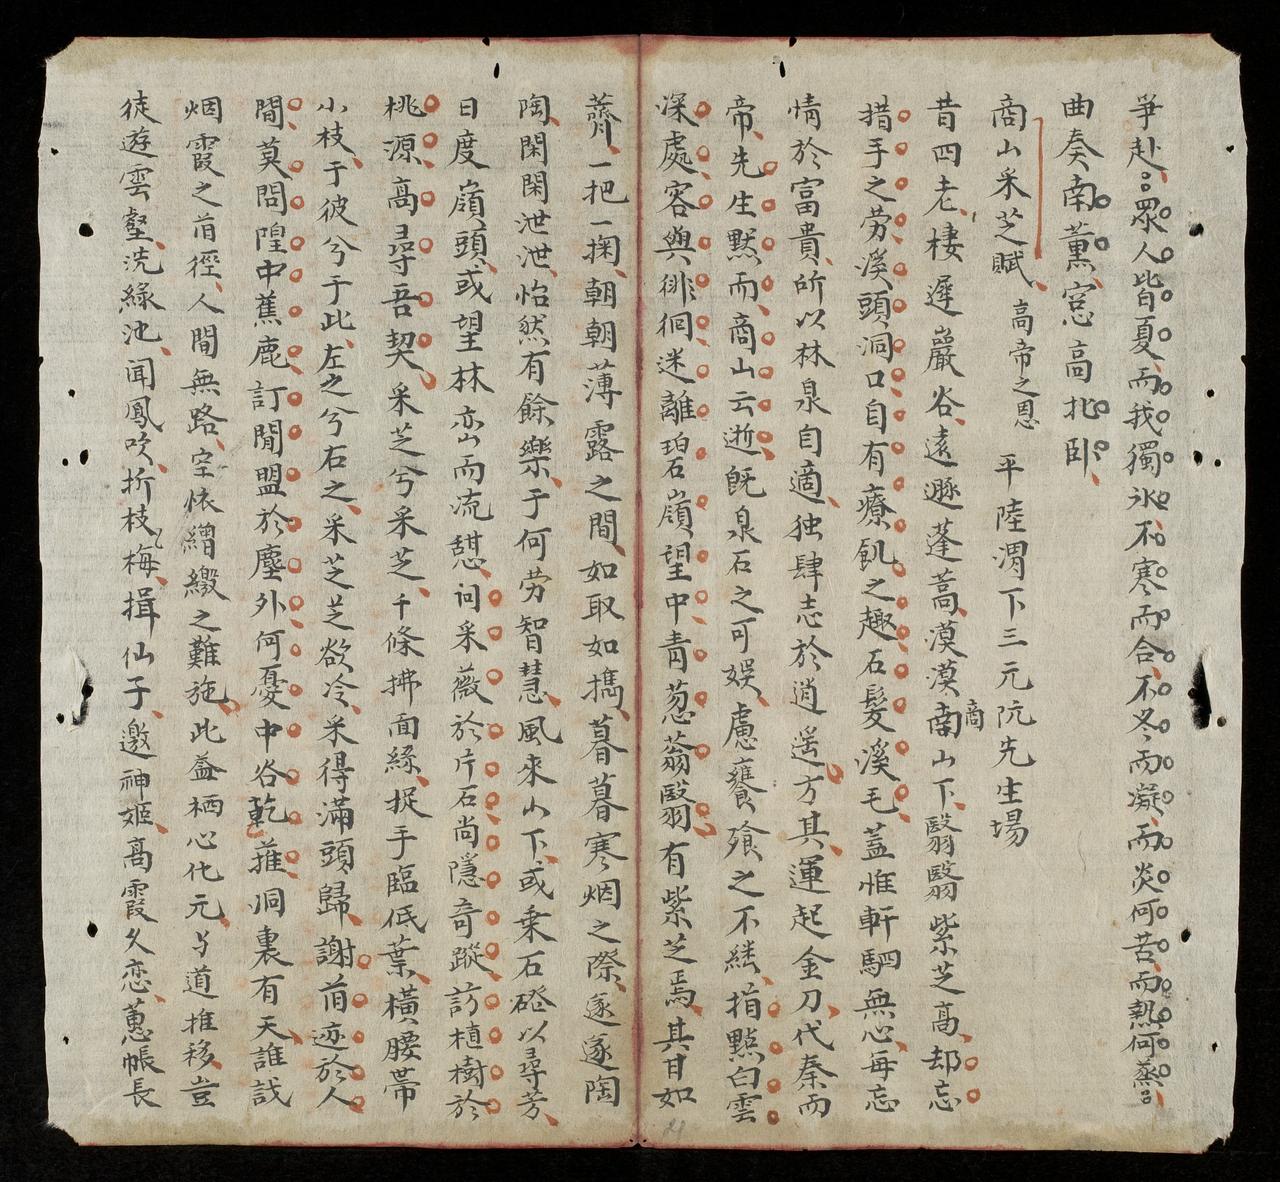 爭赴。眾人皆夏而我獨氷不寒而合不冬而凝而炎何苦而熱何蒸
曲奏南薰窓高北卧
商山采芝賦 高帝之恩 平陸渭下三元阮先生場
昔四老棲遲巖谷遠遯蓬蒿漠漠南商山下翳翳紫芝高却忘
措手之劳溪頭洞口自有療飢之趣石髮溪毛蓋惟軒駟無心每忘
情於富貴所以林泉自適独肆志於逍遥方其運起金刀代秦而
帝先生默而商山云逝既泉石之可娱慮饔飧之不継指點白雲
深處容與徘徊迷離碧嶺望中青葱蓊翳有紫芝焉其甘如
薺一把一掬朝朝薄露之間如取如擕暮暮寒烟之際遂遂陶
陶閑閑泄泄怡然有餘樂于何劳智慧風来山下或乗石磴以尋芳
日度嶺頭或望林峦而流憩问采薇於片石尚隱奇蹤訪植樹於
桃源高尋吾契采芝兮采芝千條拂面緑捉手臨低葉橫腰帯
小枝于彼兮于此左之兮右之采芝芝欲冷采得滿頭歸謝前迹於人
間莫問隍中蕉鹿訂閒盟於塵外何憂中谷乾蓷洞裏有天誰識
烟霞之前徑人間無路空懐繒繳之難施此葢栖心化元与道推移豈
徒遊雲壑洗緑池闻鳳吹折枝梅揖仙子邀神姬高霞久恋蕙帳長